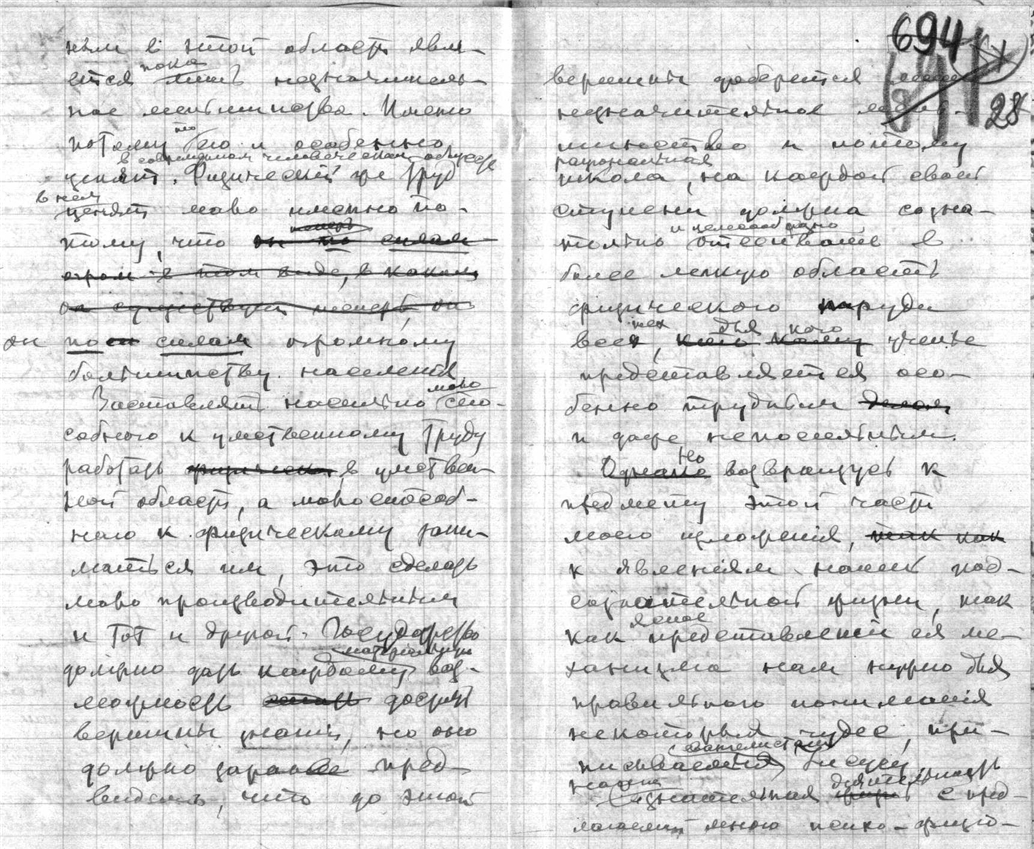 ним в этой области явля-
ется пока лишь незначитель-
ное меньшинство. Именно
потому его и особенно
в современном человеческом обществе
ценят. Физический же труд
в нем
ценят мало именно по-
тому, что он теперь по силам
огром в том виде, в каком
он существует теперь, он
он по силам огромному
большинству населения
Заставлять насильно мало спо-
собного к умственному труду
работать в умствен-
ной области, а малоспособ-
ного к физическому зани-
маться им, это сделать
мало производительным
и тот и другой. Государство
должно дать каждому материальную воз-
можность достичь
вершины знаний, но оно
должно заранее пред-
видеть, что до этой
694
28
вершины доберется
незначительное мень-
шинство и потому
рациональная
школа, на каждой своей
ступени должна созна-
и целесообразно
тельно отсеивать в
более легкую область
физического труда
всех тех, для кого ученье
представляется осо-
бенно трудным делом
и даже непосильным.
Однако Но возвращусь к
предмету этой части
моего изложения, так как
к явлениям нашей под-
сознательной жизни, так
как ясное представлений ея ме-
ханизма нам нужно для
правильного понимания
некоторых чудес, при-
писываемых евангелистами Иисусу
Наша
Сознательная деятельность с пред-
лагаемой мною психо-физио-